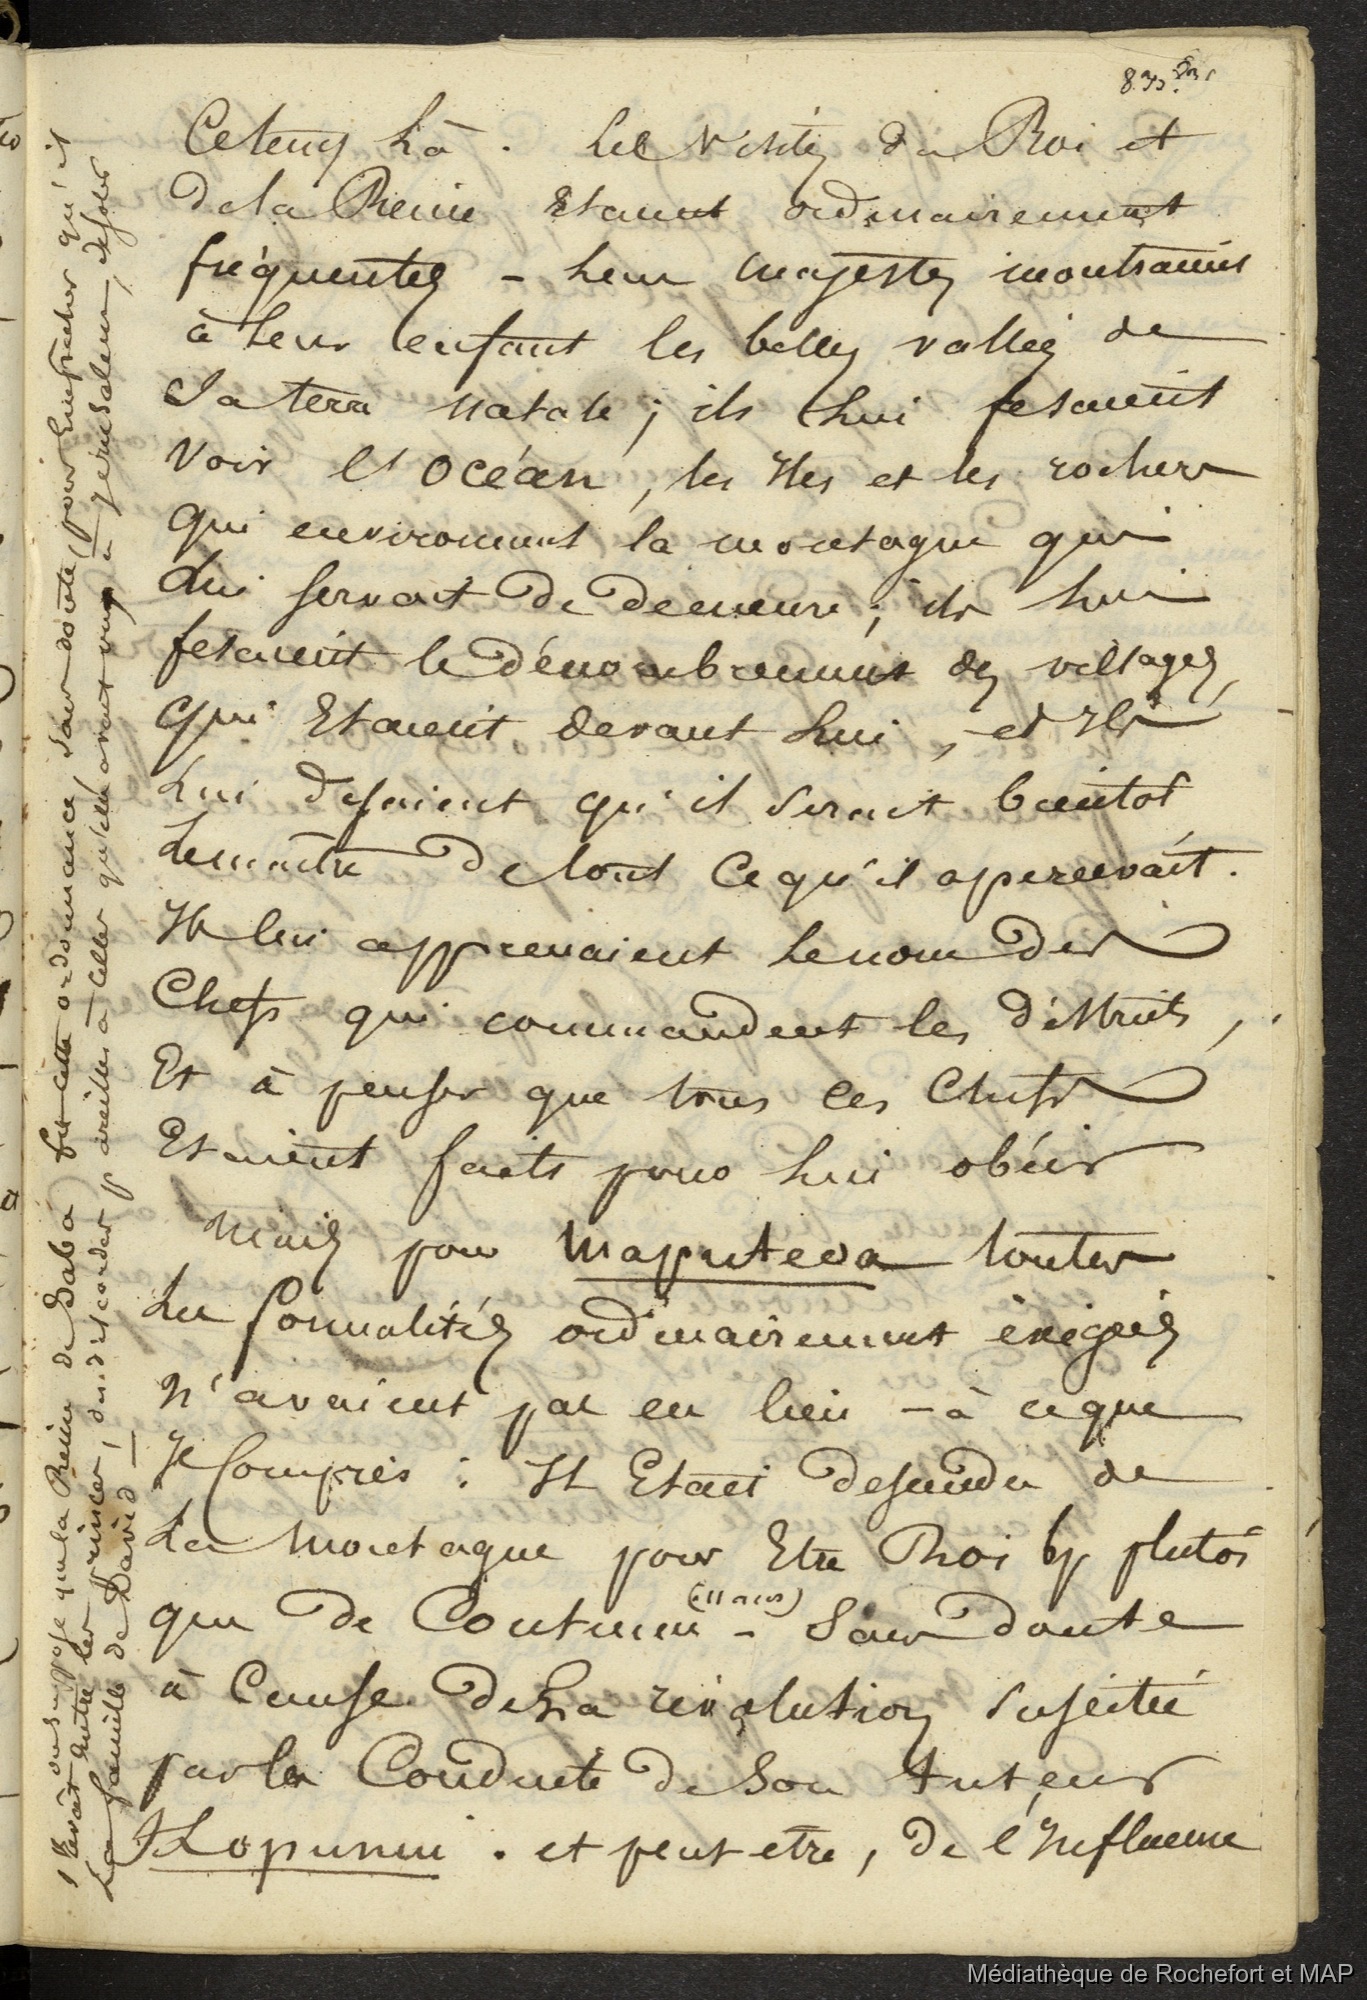 Cetems là. les visites du Roi et
dela Reine Etaient ordinairement
fréquentes - leur Majestés montraient
à leur enfant les belles vallées de
Sa terre natale ; ils lui fesaient
Voir l'océan, les Iles et les rochers
qui environnent la montagne qui
lui servait de demeure ; ils lui
fesaient le dénombrement des villages,
qui Etaient devant lui, et Ils
Lui disaient qu'il serait bientot
Lemaitre De tout Cequ'il apercevait.
Ils lui apprenaient lenom des
Chefs qui commandent les districts,
Et à penser que tous ces Chefs
Etaient faits pour lui obéir
Mais pour Maputeoa toutes
Les formalités ordinairement exigées
N'avaient pas eu lieu - à ceque
Je Compris : Il Etait descendu de
La Montagne pour Etre Roi plutot
que de Coutume (11 ans) - Sans doute
à Cause dela révolution suscitée
par la Conduite de Son tuteur
. et peut etre, de l'Influence
on suppose que la Reine de Saba fit cette ordonnance, sans doute, pour Empecher qu'il
s'élevat entre les princes, des discordes pareilles à celles qu'elle avait vues à Jérusalem,
La famille de David —
Médiathèque de Rochefort et MAP